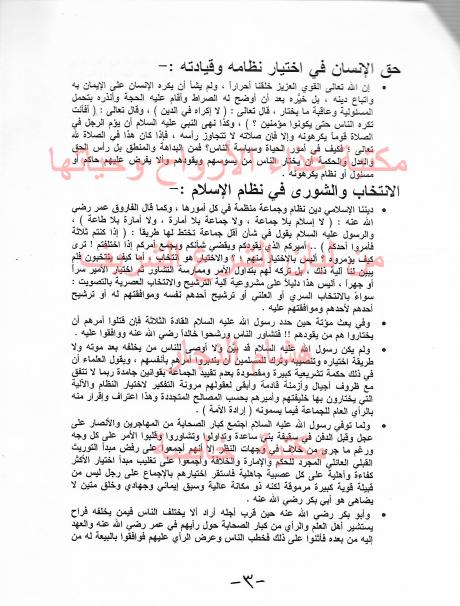 حق الإنسان في اختيار نظامه وقيادته :-
• إن الله تعالى القوي العزيز خلقنا أحراراً ، ولم يشأ أن يكره الإنسان على الإيمان به
واتباع دينه ، بل خيّره بعد أن أوضح له الصراط وأقام عليه الحجة وأنذره بتحمل
المسئولية وعاقبة ما يختار ، قال تعالى : ( لا إكراه في الدين ) ، وقال تعالى : ( أفأنت
تكره الناس حتى يكونوا مؤمنين ؟ ) ، وكذا نهى النبي عليه السلام أن يؤم الرجل في
الصلاة قوماً يكرهونه وإلا فإن صلاته لا تتجاوز رأسه ، فإذا كان هذا في الصلاة لله
تعالى ؟ فكيف في أمور الحياة وسياسة الناس؟ فمن البداهة والمنطق بل رأس الحق
والعدل والحكمة أن يختار الناس من يسوسهم ويقودهم ولا يفرض عليهم حاكم أو
مسئول أو نظام يكرهونه .
الانتخاب والشورى في نظام الإسلام :-
• ديننا الإسلامي دين نظام وجماعة منظمة في كل أمورها ، وكما قال الفاروق عمر رضي
الله عنه : ( لا إسلام بلا جماعة ، ولا جماعة بلا أمارة ، ولا أمارة بلا طاعة ) ،
والرسول عليه السلام يقول في شأن أقل جماعة تختط لها طريقا : ( إذا كنتم ثلاثة
فأمروا أحدكم ) .. أميركم الذي يقودكم ويقضي شأنكم ويجمع أمركم إذا اختلفتم ! ترى
كيف يؤمروه؟ أليس بالاختيار منهم ؟ والاختيار هو انتخاب ، أما كيف ينتخبون فلم
يبين لنا آلية ذلك ، بل تركه لهم بتداول الأمر وممارسة التشاور ثم اختيار الأمير سراً
أو جهراً ، أليس هذا دليلاً على مشروعية آلية الترشيح والانتخاب العصرية بالتصويت :
سواء بالانتخاب السري أو العلني أو ترشيح أحدهم نفسه وموافقتهم له أو ترشيح
أحدهم لأحدهم وموافقتهم عليه .
• وفي بعث مؤتة حين حدد رسول الله عليه السلام القادة الثلاثة فإن قتلوا أمرهم أن
يختاروا هم من يقودهم !! فتشاور الناس ورشحوا خالداً رضي الله عنه ووافقوا عليه .
• ولم يكن رسول الله عليه السلام قد بين ولا أوصى للناس من يخلفه بعد موته ولا
طريقة اختياره وتنصيبه وترك المسلمين أن يتدبروا أمرهم بأنفسهم ، ويقول العلماء أن
في ذلك حكمة تشريعية كبيرة ومقصودة بعدم تقييد الجماعة بقوانين جامدة ربما لا تتفق
مع ظروف أجيال وأزمنة قادمة وأبقى لعقولهم مرونة التفكير لاختيار النظام والآلية
التي يختارون بها خليفتهم وأميرهم بحسب المصالح المتجددة وهذا اعتراف وإقرار منه
بالرأي العام للجماعة فيما يسمونه ( إرادة الأمة ) .
• ولما توفي رسول الله عليه السلام اجتمع كبار الصحابة من المهاجرين والأنصار على
عجل وقبل الدفن في سقيفة بني ساعدة وتداولوا وتشاوروا وقلبوا الأمر على كل وجه
ورغم ما جرى من خلاف في وجهات النظر إلا أنهم أجمعوا على رفض مبدأ التوريث
القبلي العائلي المجرد للحكم والإمارة والخلافة وأجمعوا على تغليب مبدأ اختيار الأكثر
كفاءة وأهلية على كل عصبية جاهلية فاستقر اختيارهم بالإجماع على رجل ليس من
قبيلة قوية كبيرة مرموقة لكنه ذو مكانة عالية وسبق إيماني وجهادي وخلق متين لا
يضاهى هو أبي بكر رضي الله عنه .
• وأبو بكر رضي الله عنه حين قرب أجله أراد ألا يختلف الناس فيمن يخلفه فراح
يستشير أهل العلم والرأي من كبار الصحابة حول رأيهم في عمر رضي الله عنه والعهد
إليه من بعده فأثنوا على ذلك فخطب الناس وعرض الرأي عليهم فوافقوا بالبيعة له من
-٣-